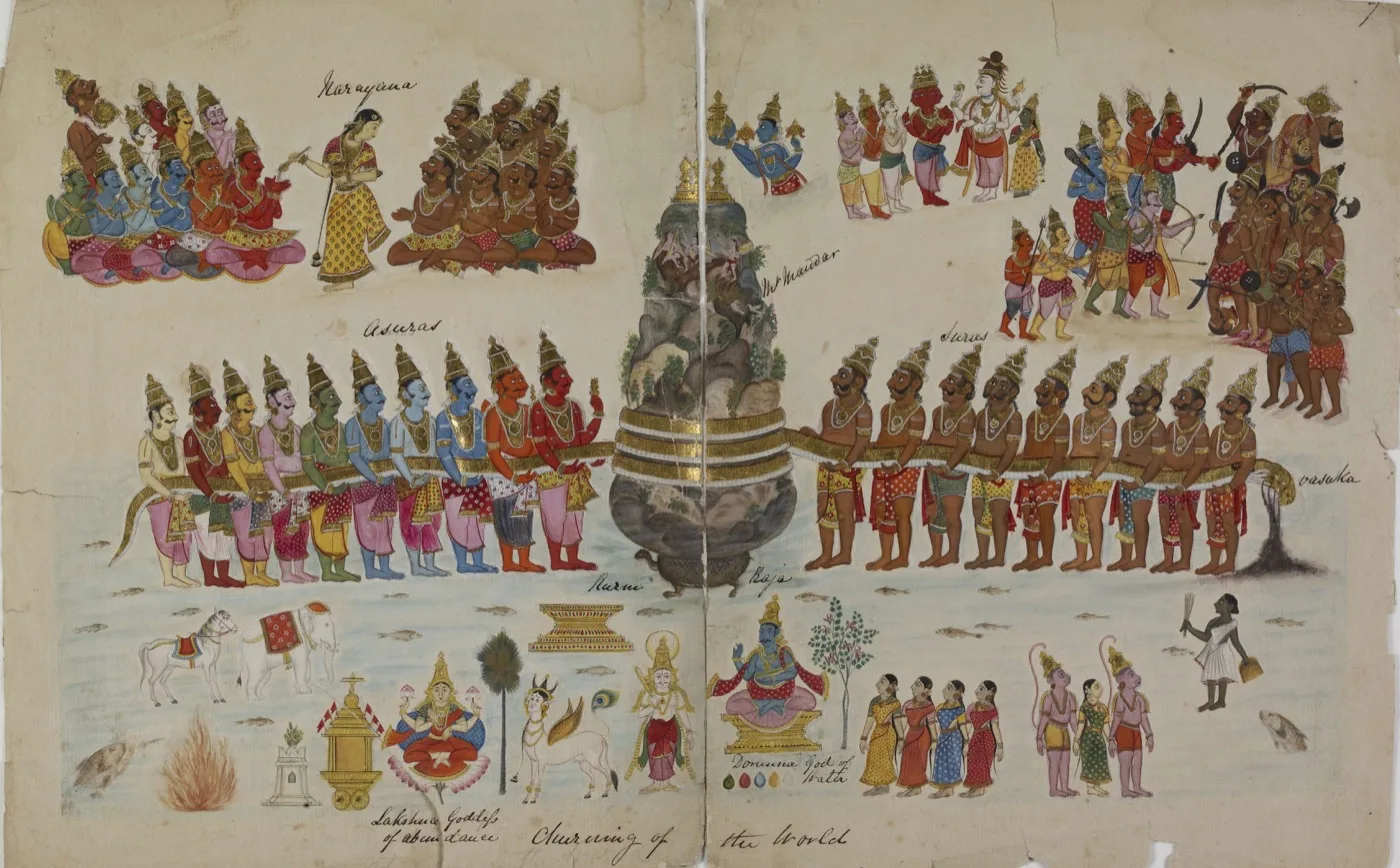 Narayana
Mt Mandar
Asuras
Suras
vasuka
Kurm Raja
Dorunna God of
Water
Lakshua Goddess
of abundance
Churning of the World